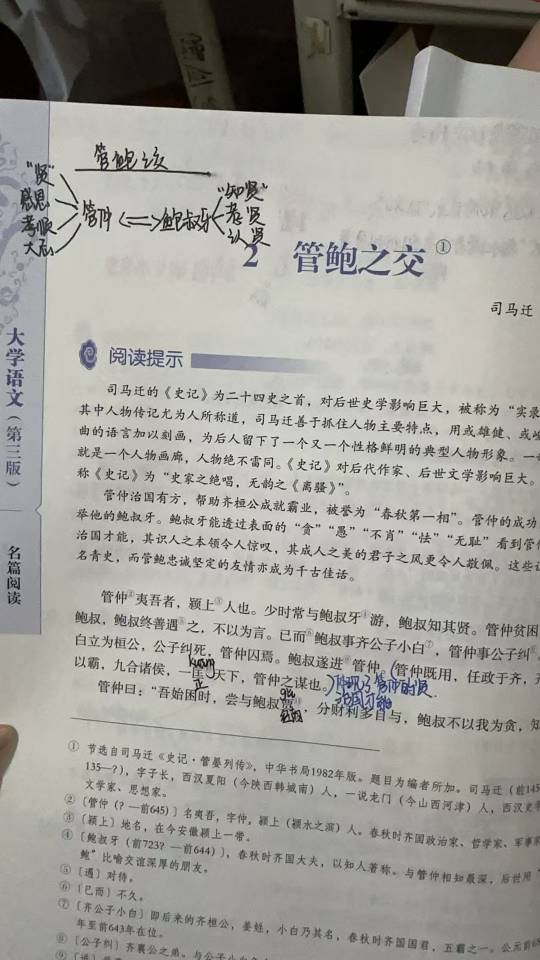 管鲍之交
"贤"
感恩
孝顺
大忠
管仲 <=> 鲍叔牙
"知贤"
荐贤
让贤
2 管鲍之交①
司马迁
大学语文(第三版)
名篇阅读
阅读提示
司马迁的《史记》为二十四史之首,对后世史学影响巨大,被称为"实录
其中人物传记尤为人所称道,司马迁善于抓住人物主要特点,用或雄健、或
曲的语言加以刻画,为后人留下了一个又一个性格鲜明的典型人物形象。一
就是一个人物画廊,人物绝不雷同。《史记》对后代作家、后世文学影响巨大。
称《史记》为"史家之绝唱,无韵之《离骚》"。
管仲治国有方,帮助齐桓公成就霸业,被誉为"春秋第一相"。管仲的成功
举他的鲍叔牙。鲍叔牙能透过表面的"贪""愚""不肖""怯""无耻"看到管
治国才能,其识人之本领令人惊叹,其成人之美的君子之风更令人敬佩。这些
名青史,而管鲍忠诚坚定的友情亦成为千古佳话。
管仲②夷吾者,颍上③人也。少时常与鲍叔牙④游,鲍叔知其贤。管仲贫困
鲍叔,鲍叔终善遇⑤之,不以为言。已而⑥鲍叔事齐公子小白⑦,管仲事公子纠⑧
白立为桓公,公子纠死,管仲囚焉。鲍叔遂进⑨管仲。(管仲既用,任政于齐,
以霸,九合诸侯,一匡天下,管仲之谋也。)体现了管仲的贤
kuang
正
治国才能
管仲曰:"吾始困时,尝与鲍叔贾⑪,分财利多自与,鲍叔不以我为贪,知
gǔ
① 节选自司马迁《史记·管晏列传》,中华书局1982年版。题目为编者所加。司马迁(前145
135—?),字子长,西汉夏阳(今陕西韩城南)人,一说龙门(今山西河津)人,西汉史
文学家、思想家。
② 〔管仲(?—前645)〕名夷吾,字仲,颍上(颍水之滨)人。春秋时齐国政治家、哲学家、军事
③ 〔颍上〕地名,在今安徽颍上一带。
④ 〔鲍叔牙(前723?—前644)〕,春秋时齐国大夫,以知人著称。与管仲相知最深,后世用"
鲍"比喻交谊深厚的朋友。
⑤ 〔遇〕对待。
⑥ 〔已而〕不久。
⑦ 〔齐公子小白〕即后来的齐桓公,姜姓,小白乃其名,春秋时齐国国君,五霸之一。公元前
年至前643年在位。
⑧ 〔公子纠〕齐襄公之弟。